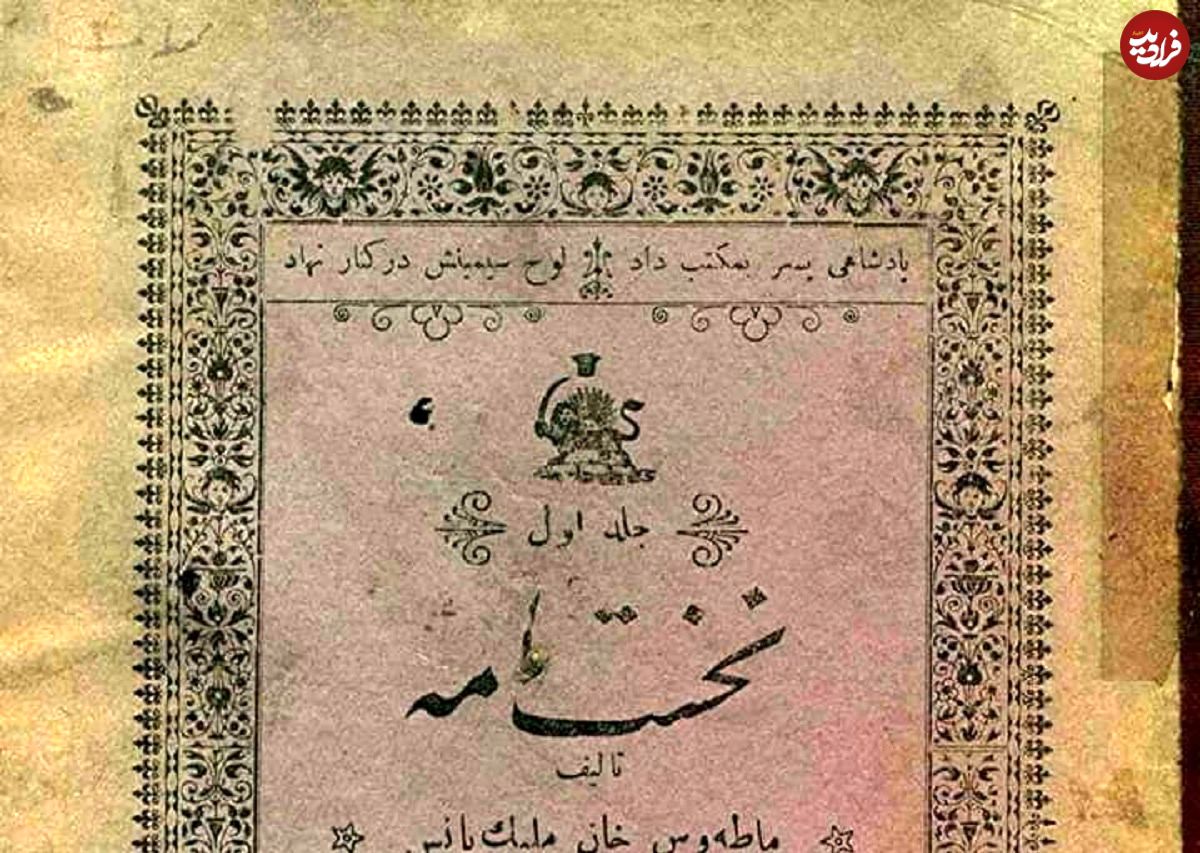 فرادید
پادشاهی پسر بمکتب داد لوح سیمینش در کنار نهاد
جلد اول
نخستنامه
تالیف
ماطه‌وس خان ملیك یانس